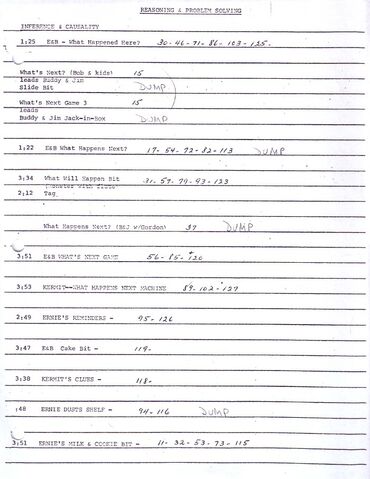 REASONING & PROBLEM SOLVING
INFERENCE & CAUSALITY
1:25 E&B - What Happened Here? 30-46-71-86-103-125-
What's Next? (Bob & kids) 15
leads Buddy & Jim
Slide Bit DUMP
What's Next Game 3 15
leads
Buddy & Jim Jack-in-Box DUMP
1:22 E&B What Happens Next? 17-54-72-82-113 DUMP
3:34 What Will Happen Bit 31-57-79-93-123
2:12 Tag
What Happens Next? (B&J w/Gordon) 37 DUMP
3:51 E&B WHAT'S NEXT GAME 56-85-120
3:53 KERMIT--WHAT HAPPENS NEXT MACHINE 89-102-127
2:49 ERNIE'S REMINDERS - 95-126
3:47 E&B Cake Bit - 119-
3:38 KERMIT'S CLUES - 118-
:48 ERNIE DUSTS SHELF - 94-116 DUMP
3:51 ERNIE'S MILK & COOKIE BIT - 11-32-53-73-115